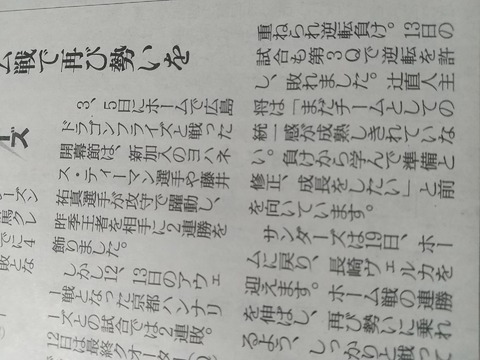 ム戦で再び勢いを
ーズ
ーズン
馬クレ
でに4
敗とな
3、5日にホームで広島
ドラゴンフライズと戦った
開幕節は、新加入のヨハネ
ス・ティーマン選手や藤井
祐真選手が攻守で躍動し、
昨季王者を相手に2連勝を
飾りました。
しかし12、13日のアウェ
ー戦となった京都ハンナリ
ーズとの試合では2連敗。
12日は最終クオーター(
重ねられ逆転負け。13日の
試合も第3Qで逆転を許
し、敗れました。辻直人主
将は「まだチームとしての
統一感が成熟しきれていな
い。負けから学んで準備と
修正、成長をしたい」と前
を向いています。
サンダーズは19日、ホー
ムに戻り、長崎ヴェルカを
迎えます。ホーム戦の連勝
を伸ばし、再び勢いに乗れ
るよう、しっかりと戦って